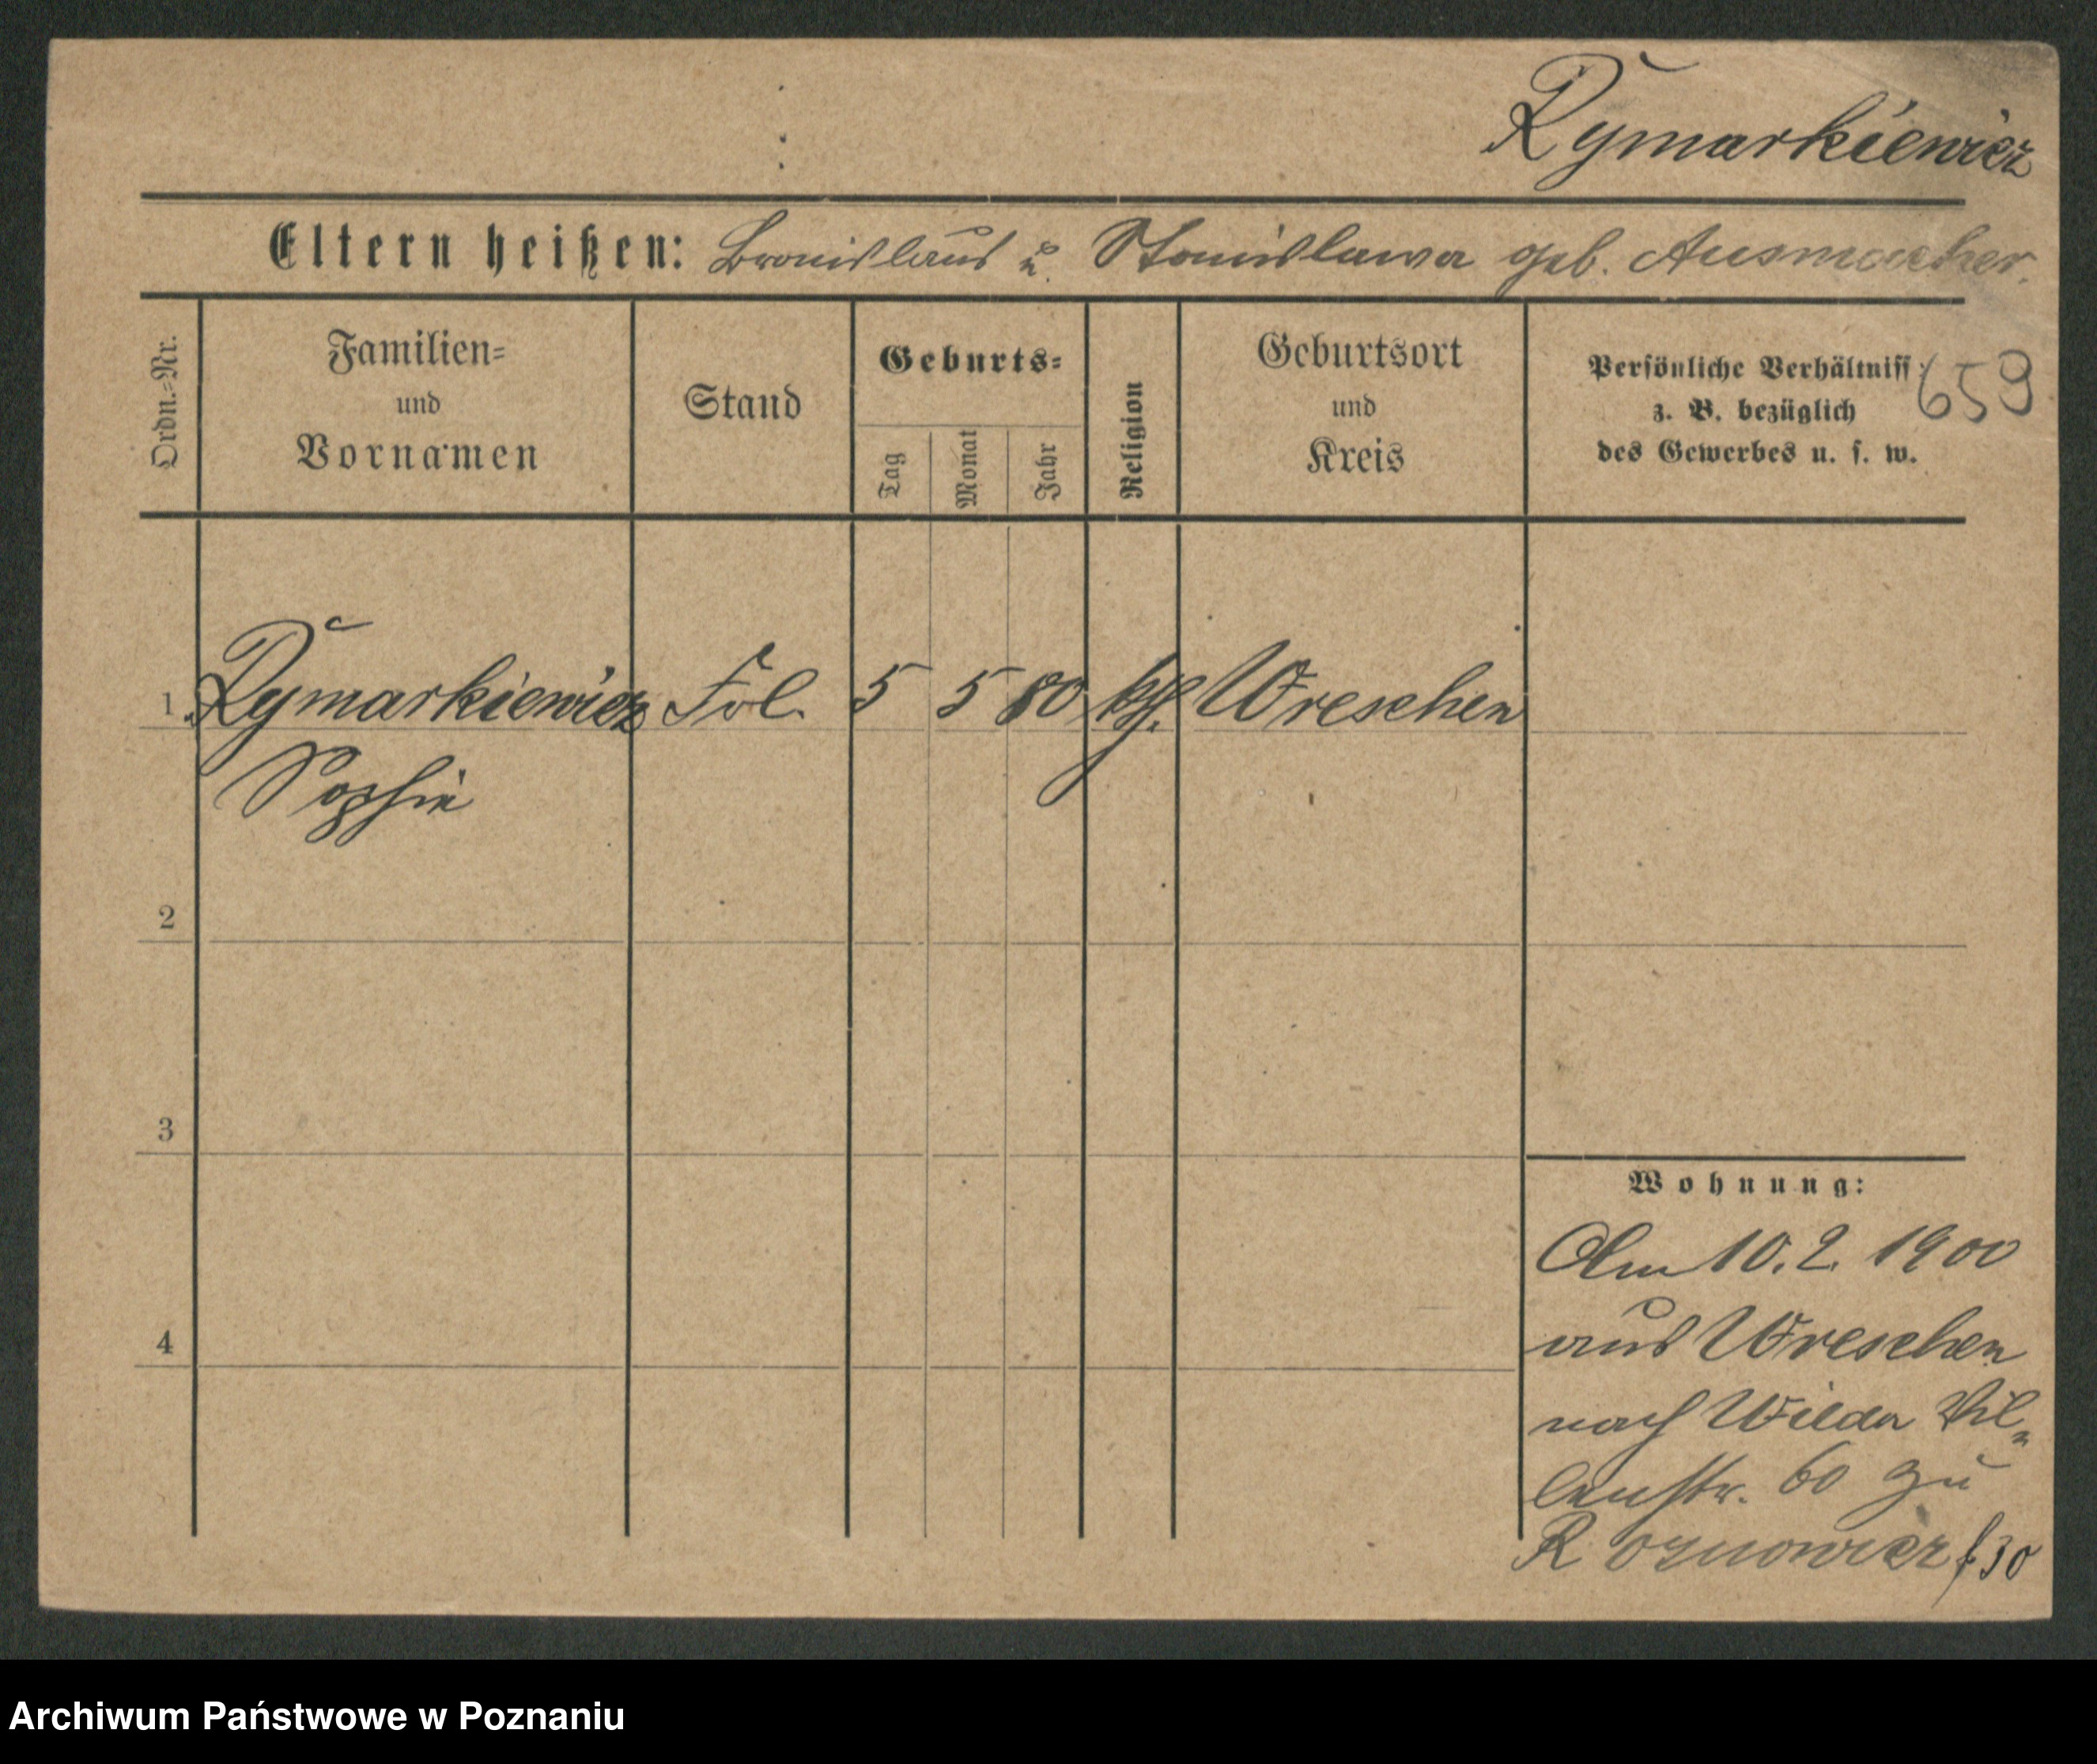 Rymarkiewicz
Eltern heißen: Bronislaus u. Stanislawa geb. Ausmacher.
Ordn.-Nr.
Familien-
und
Vornamen
Stand
Geburts-
Tag
Monat
Jahr
Religion
Geburtsort
und
Kreis
Persönliche Verhältniss
z. B. bezüglich
des Gewerbes u. s. w.
659
1 Rymarkiewicz Frl. 5 5 80 kth. Wreschen
Sophie
2
3
4
Wohnung:
Am 10. 2. 1900
aus Wreschen
nach Wilda Vil-
lenstr. 60 zu
Roznowicz 30
Archiwum Państwowe w Poznaniu